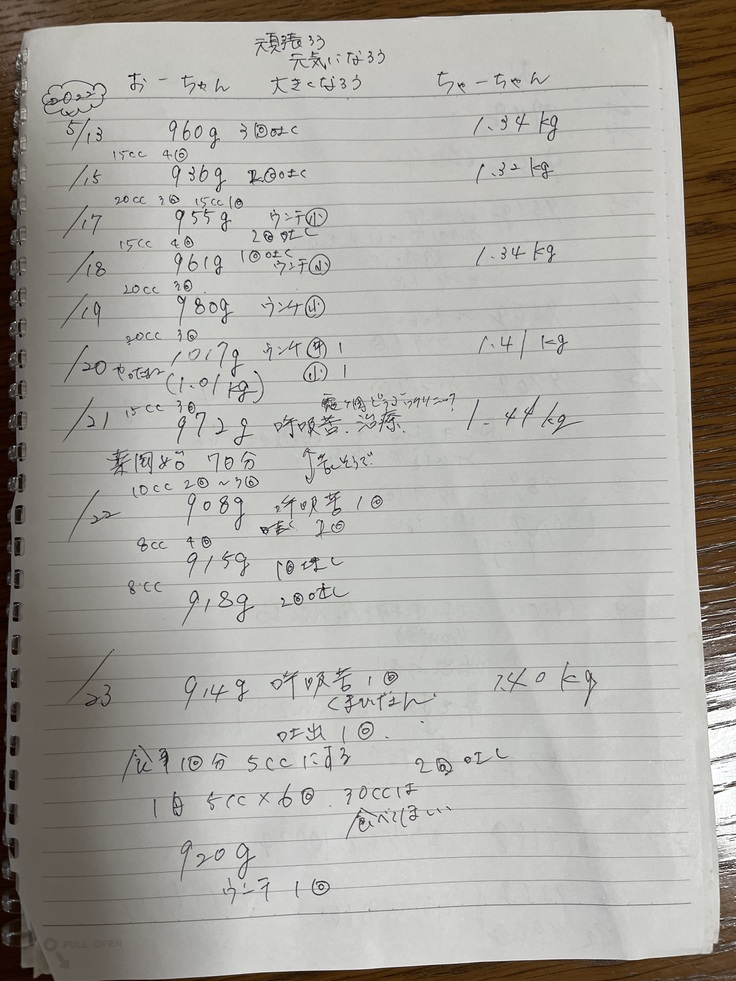 頑張ろう
元気になろう
2022 おーちゃん 大きくなろう ちゃーちゃん
5/13 960g 3回吐く 1.34kg
15cc 4回
/15 936g 吐く 1.32kg
20cc 3回 15cc 1回
/17 955g ウンチ小
15cc 4回 2回吐く
/18 961g 1回吐く 1.34kg
ウンチ小
20cc 3回
/19 980g ウンチ小
20cc 3回
/20 やったね 1017g ウンチ 1 1.41kg
(1.01kg) 小 1
15cc 3回
/21 972g 呼吸苦.治療. 1.44kg
70分
10cc 2回~3回
/22 908g 呼吸苦 1回
吐く 回
8cc 4回
915g 1回吐く
8cc
918g 2回吐く
/23 914g 呼吸苦 1回 1.40kg
吐出 1回.
食事1回分 5ccにする 2回吐く
1日 5cc×6回.30ccは
食べてほしい
920g
ウンチ 1回
FULL OPEN